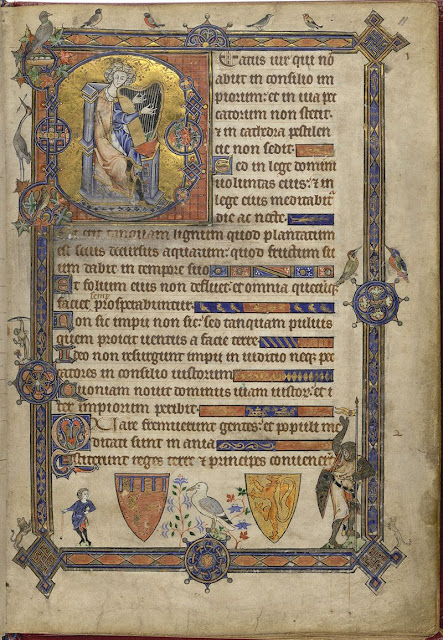 Beatus uir qui nō
abiit in consilio im
piorum: et in uia pec
catorum non stetit:
& in cathedra pestilen
tie non sedit.
Sed in lege domini
uoluntas eius: & in
lege eius meditabit'
die ac nocte.
Et erit tanquam lignum quod plantatum
est secus decursus aquarum: quod fructum su
um dabit in tempore suo
Et folium eius non defluet: et omnia quecūq;
semp
faciet prosperabuntur.
Non sic impii non sic: sed tanquam puluis
quem proicit uentus a facie terre.
Ideo non resurgunt impii in iudicio neq; pec
catores in consilio iustorum
Quoniam nouit dominus uiam iustor: et i
ter impiorum peribit.
Quare fremuerunt gentes: et populi me
ditati sunt inania
Astiterunt reges terre & principes conuenert